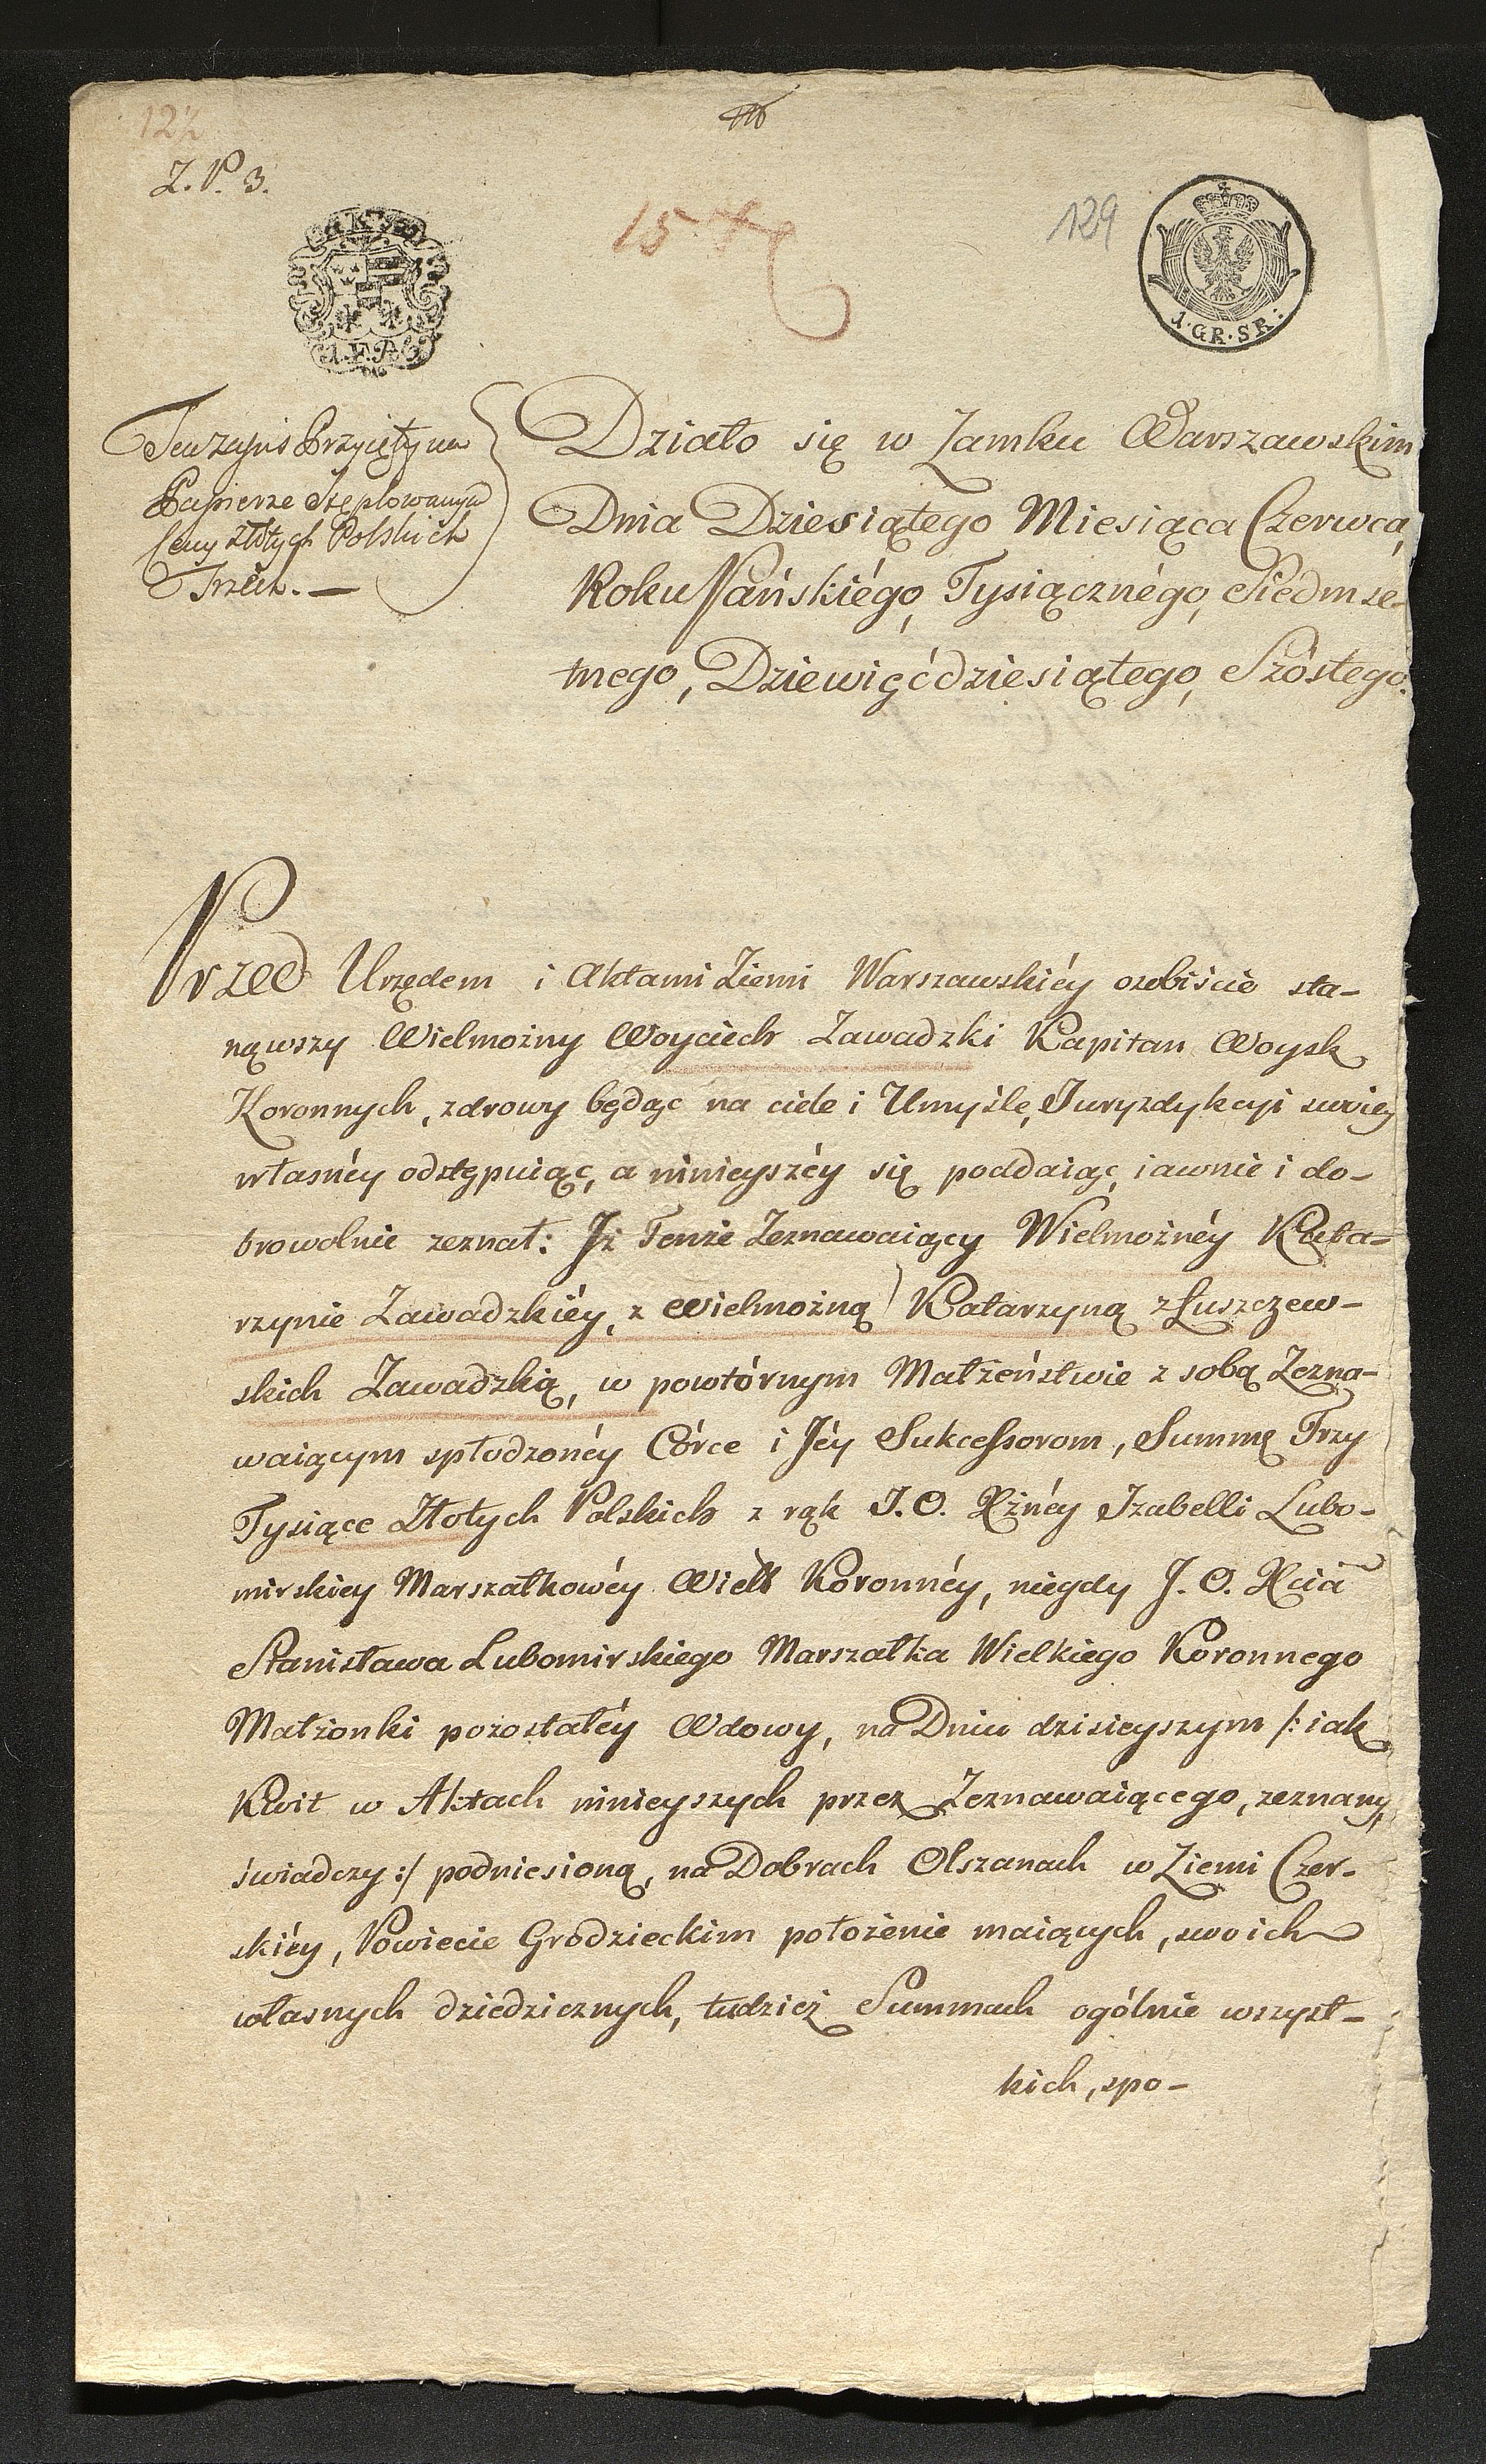 122
Z. P. 3.
129
1·GR·SR:
Ten zapis Przyięty na
Papierze Stęplowanym
Ceny Złotych Polskich
Trzech. —
Działo się w Zamku Warszawskim
Dnia Dziesiątego Miesiąca Czerwca,
Roku Pańskiégo, Tysiącznégo, Siedmse-
tnego, Dziewięćdziesiątego, Szóstego.
Przed Urzędem i Aktami Ziemi Warszawskiéy osobiście sta-
nąwszy Wielmożny Woyciech Zawadzki Kapitan Woysk
Koronnych, zdrowy będąc na ciele i Umyśle, Juryzdykcyi swoiey
własnéy odstępuiąc, a ninieyszéy się poddaiąc, iawnie i do-
browolnie zeznał: Jż Tenże Zeznawaiący Wielmożnéy Kata-
rzynie Zawadzkiéy, z Wielmożną Katarzyną z Łuszczew-
skich Zawadzką, w powtórnym Małżeństwie z sobą Zezna-
waiącym spłodzonéy Córce i Jéy Sukcessorom, Summę Trzy
Tysiące Złotych Polskich z rąk J. O. Xżnéy Jzabelli Lubo-
mirskiey Marszałkowéy Wielk Koronnéy, niegdy J. O. Xcia
Stanisława Lubomirskiego Marszałka Wielkiego Koronnego
Małżonki pozostałéy Wdowy, na Dniu dzisieyszym /: iak
Kwit w Aktach ninieyszych przez Zeznawaiącego, zeznany,
świadczy :/ podniesioną, na Dobrach Olszanach w Ziemi Czer-
skiéy, Powiecie Grodzieckim położenie maiących, swoich
własnych dziedzicznych, tudzież Summach ogólnie wszyst-
kich, spo-